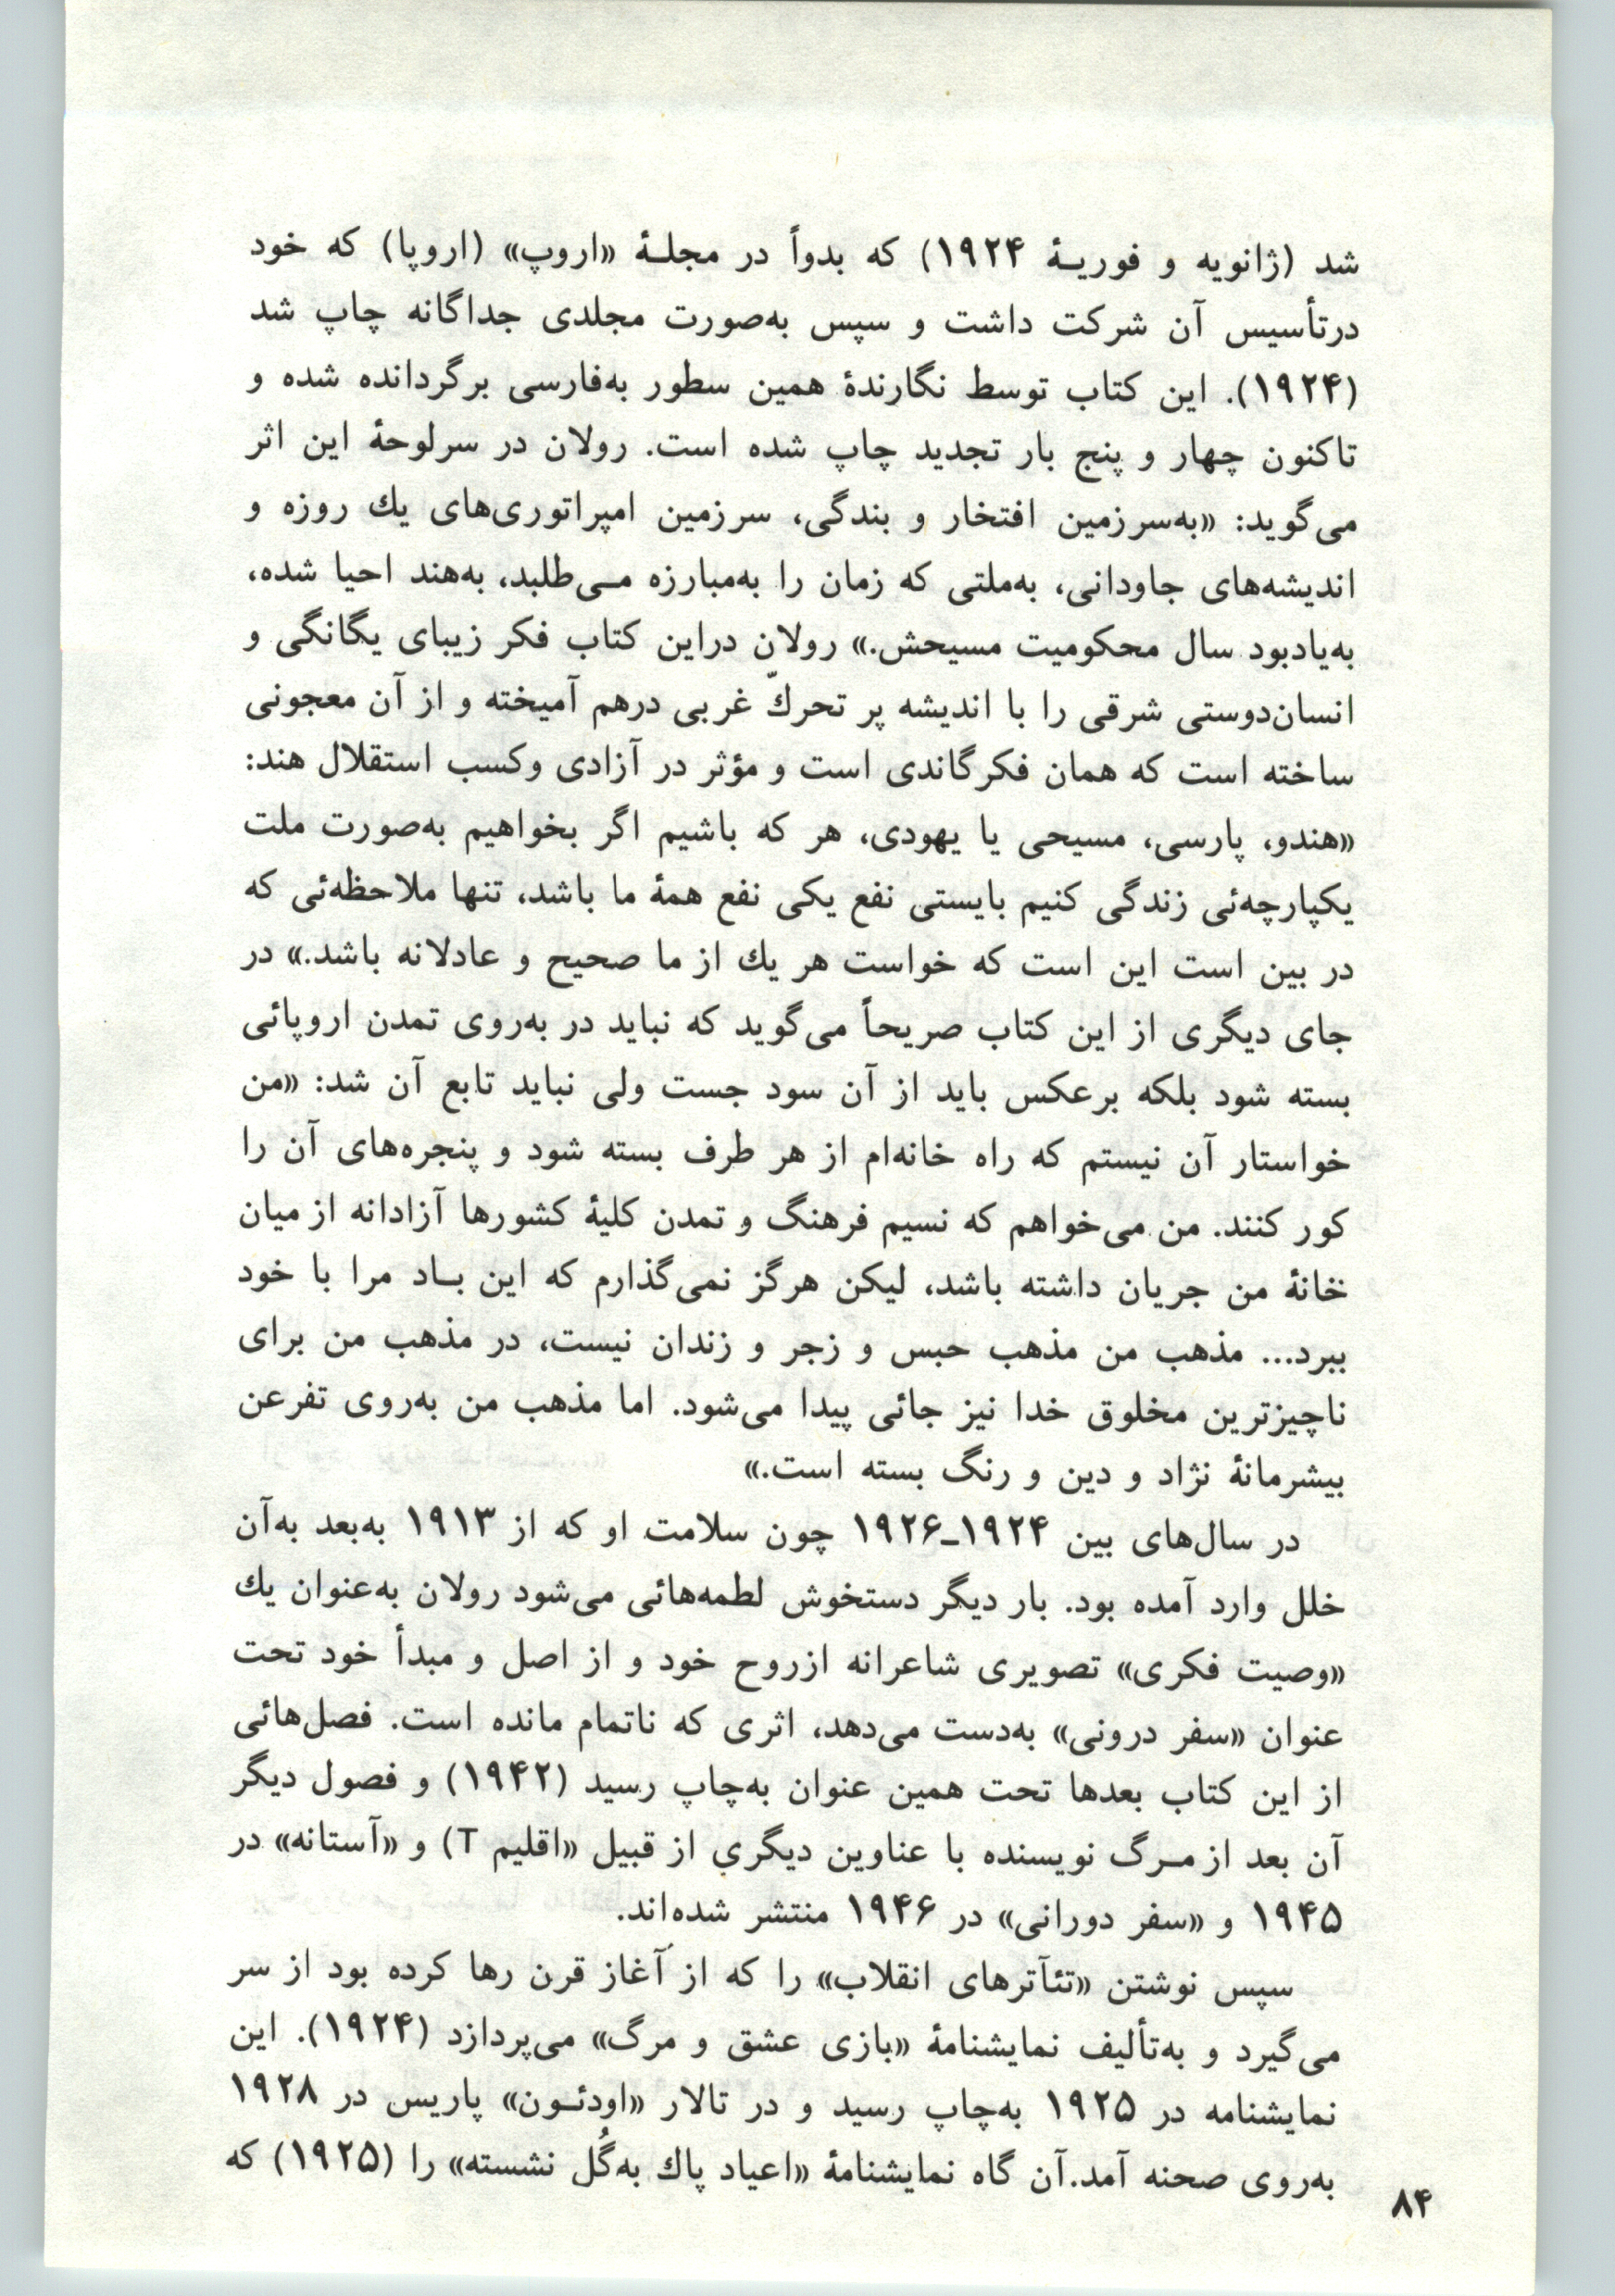 شد (ژانویه و فوریـۀ ۱۹۲۴) که بدواً در مجلـۀ «اروپ» (اروپا) که خود
درتأسیس آن شرکت داشت و سپس به‌صورت مجلدی جداگانه چاپ شد
(۱۹۲۴). این کتاب توسط نگارندۀ همین سطور به‌فارسی برگردانده شده و
تاکنون چهار و پنج بار تجدید چاپ شده است. رولان در سرلوحۀ این اثر
می‌گوید: «به‌سرزمین افتخار و بندگی، سرزمین امپراتوری‌های یك روزه و
اندیشه‌های جاودانی، به‌ملتی که زمان را به‌مبارزه مـی‌طلبد، به‌هند احیا شده،
به‌یادبود سال محکومیت مسیحش.» رولان دراین کتاب فکر زیبای یگانگی و
انسان‌دوستی شرقی را با اندیشه پر تحركّ غربی درهم آمیخته و از آن معجونی
ساخته است که همان فکرگاندی است و مؤثر در آزادی وکسب استقلال هند:
«هندو، پارسی، مسیحی یا یهودی، هر که باشیم اگر بخواهیم به‌صورت ملت
یکپارچه‌ئی زندگی کنیم بایستی نفع یکی نفع همۀ ما باشد، تنها ملاحظه‌ئی که
در بین است این است که خواست هر یك از ما صحیح و عادلانه باشد.» در
جای دیگری از این کتاب صریحاً می‌گوید که نباید در به‌روی تمدن اروپائی
بسته شود بلکه برعکس باید از آن سود جست ولی نباید تابع آن شد: «من
خواستار آن نیستم که راه خانه‌ام از هر طرف بسته شود و پنجره‌های آن را
کور کنند. من می‌خواهم که نسیم فرهنگ و تمدن کلیۀ کشورها آزادانه از میان
خانۀ من جریان داشته باشد، لیکن هرگز نمی‌گذارم که این بـاد مرا با خود
ببرد... مذهب من مذهب حبس و زجر و زندان نیست، در مذهب من برای
ناچیزترین مخلوق خدا نیز جائی پیدا می‌شود. اما مذهب من به‌روی تفرعن
بیشرمانۀ نژاد و دین و رنگ بسته است.»
در سال‌های بین ۱۹۲۴ـ۱۹۲۶ چون سلامت او که از ۱۹۱۳ به‌بعد به‌آن
خلل وارد آمده بود. بار دیگر دستخوش لطمه‌هائی می‌شود رولان به‌عنوان یك
«وصیت فکری» تصویری شاعرانه ازروح خود و از اصل و مبدأ خود تحت
عنوان «سفر درونی» به‌دست می‌دهد، اثری که ناتمام مانده است. فصل‌هائی
از این کتاب بعدها تحت همین عنوان به‌چاپ رسید (۱۹۴۲) و فصول دیگر
آن بعد از مـرگ نویسنده با عناوین دیگري از قبیل «اقلیم T) و «آستانه» در
۱۹۴۵ و «سفر دورانی» در ۱۹۴۶ منتشر شده‌اند.
سپس نوشتن «تئآترهای انقلاب» را که از آغاز قرن رها کرده بود از سر
می‌گیرد و به‌تألیف نمایشنامۀ «بازی عشق و مرگ» می‌پردازد (۱۹۲۴). این
نمایشنامه در ۱۹۲۵ به‌چاپ رسید و در تالار «اودئـون» پاریس در ۱۹۲۸
به‌روی صحنه آمد.آن گاه نمایشنامۀ «اعیاد پاك به‌گُل نشسته» را (۱۹۲۵) که
۸۴